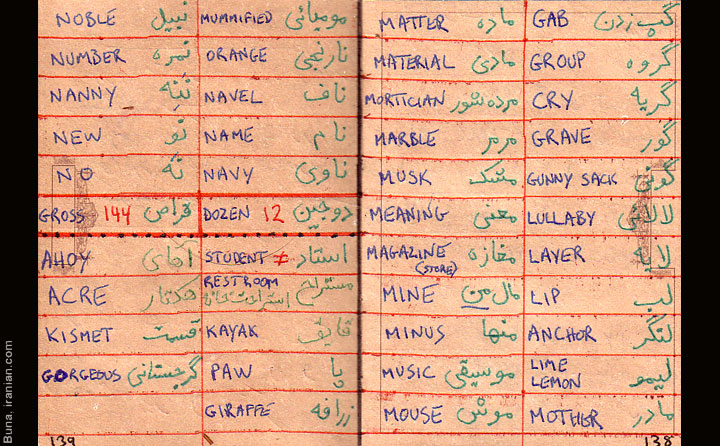 NOBLE نبیل MUMMIFIED مومیائی
NUMBER نمره ORANGE نارنجی
NANNY ننه NAVEL ناف
NEW نو NAME نام
NO نه NAVY ناوی
GROSS 144 قراص DOZEN 12 دوجین
AHOY آهای STUDENT ≠ استاد
ACRE هکتار RESTROOM مستراح
استراحتگاه
KISMET قسمت KAYAK قایق
GORGEOUS گرجستانی PAW پا
GIRAFFE زرافه
139
MATTER ماده GAB گپ زدن
MATERIAL مادی GROUP گروه
MORTICIAN مرده شور CRY گریه
MARBLE مرمر GRAVE گور
MUSK مشک GUNNY SACK گونی
MEANING معنی LULLABY لالائی
MAGAZINE مغازه LAYER لایه
(STORE)
MINE مال من LIP لب
MINUS منها ANCHOR لنگر
MUSIC موسیقی LIME لیمو
LEMON
MOUSE موش MOTHER مادر
138
Buna, iranian.com